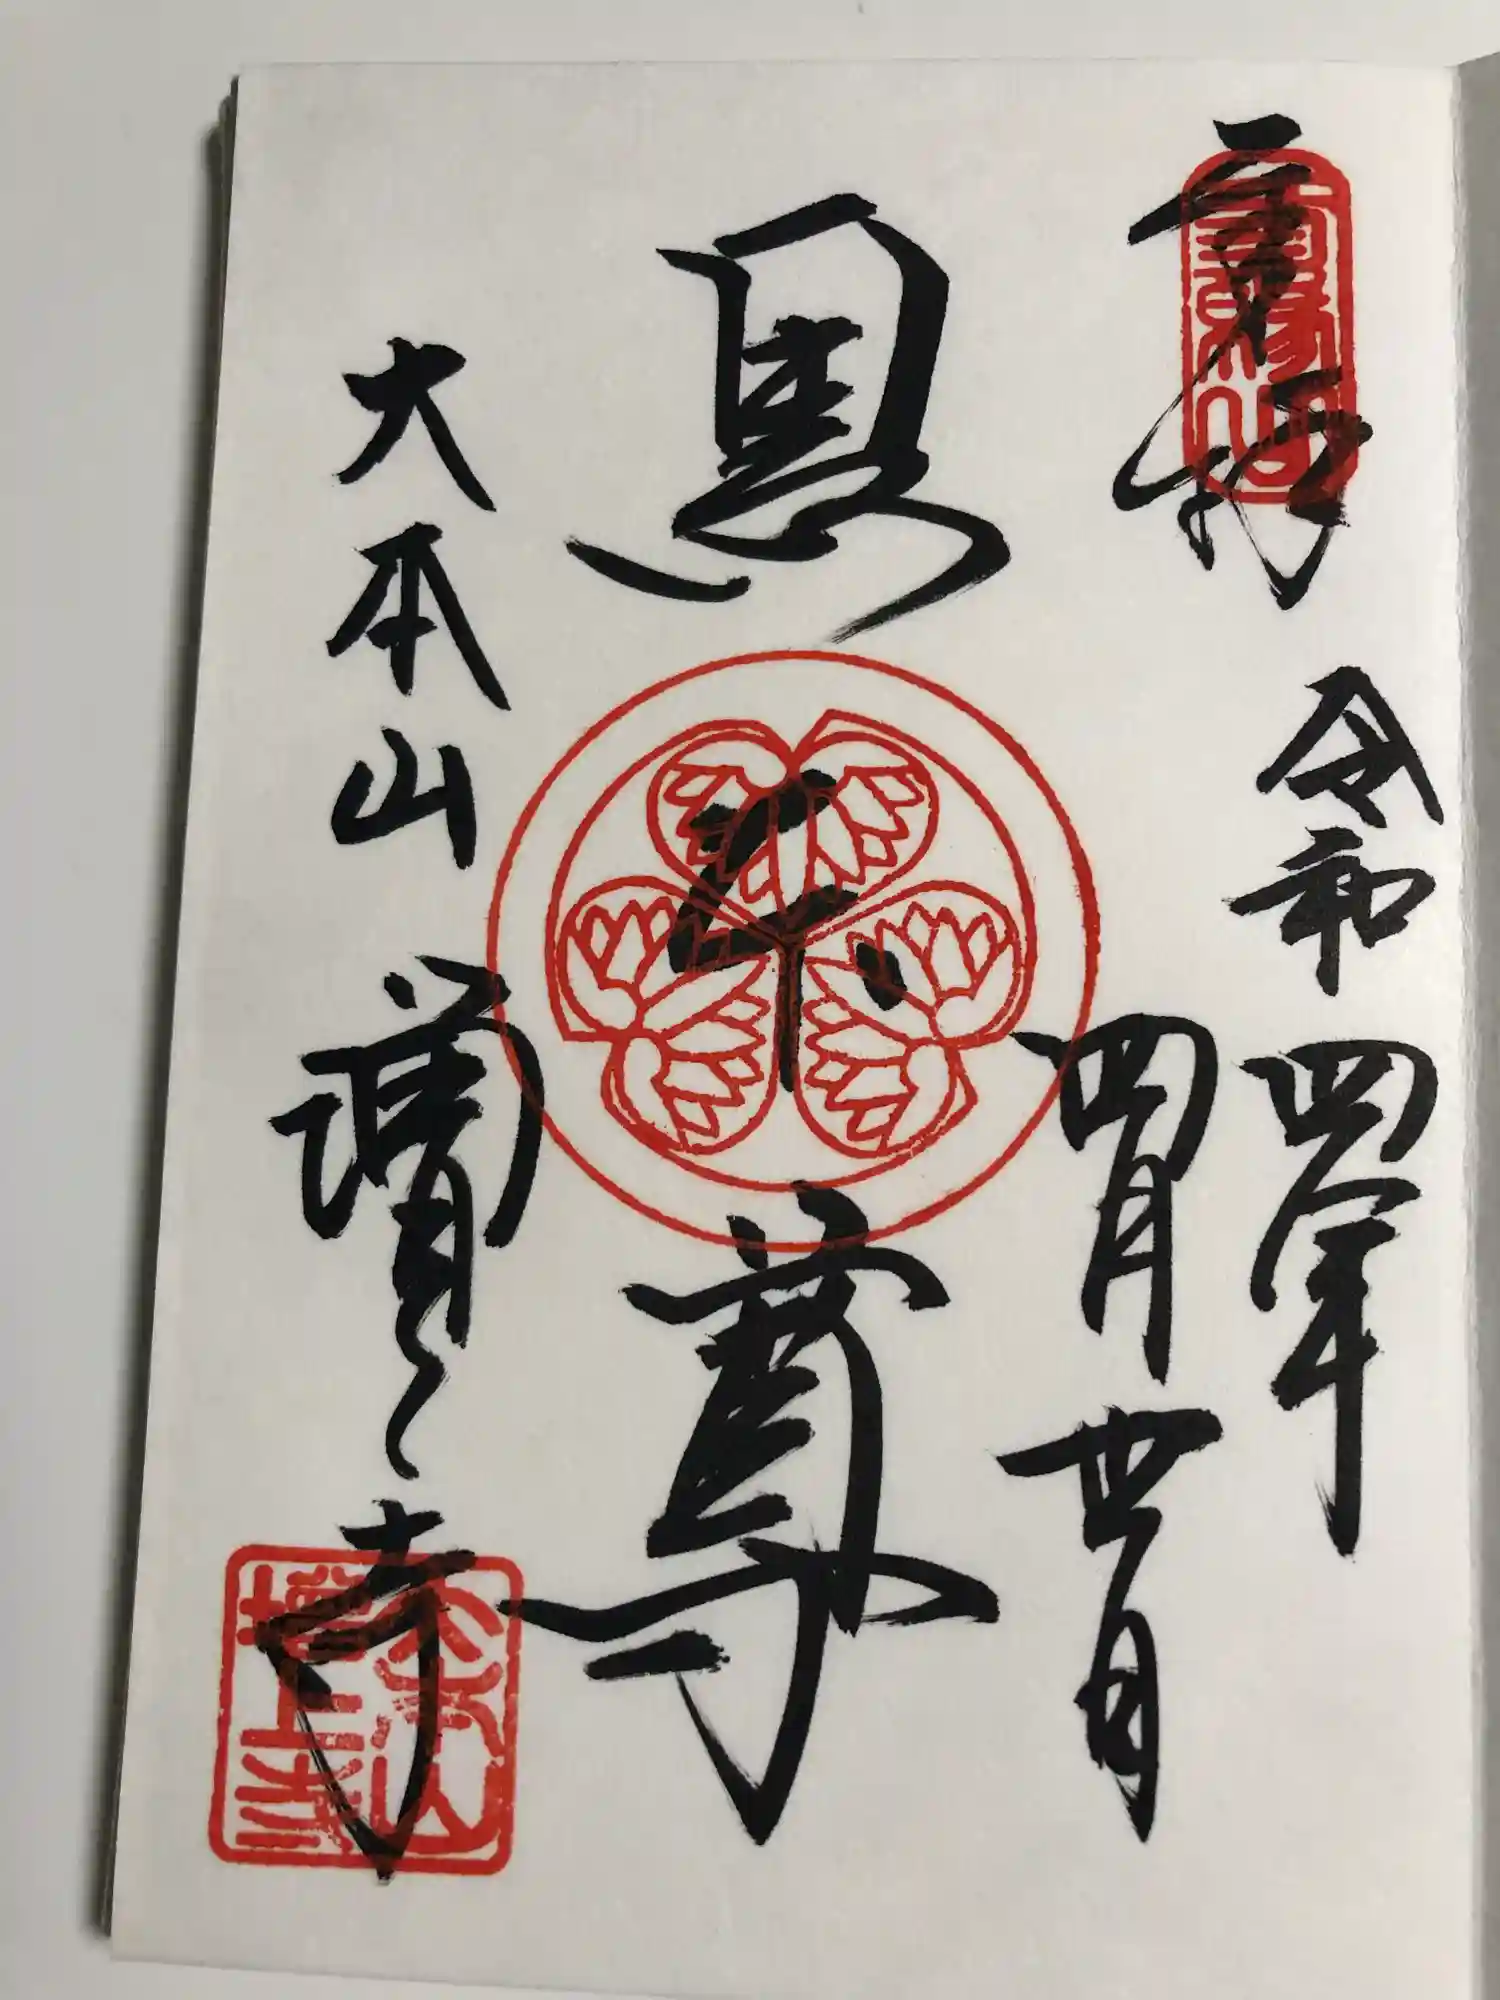 奉拝
令和四年
四月
黒本尊
大本山増上寺
大本山
増上寺